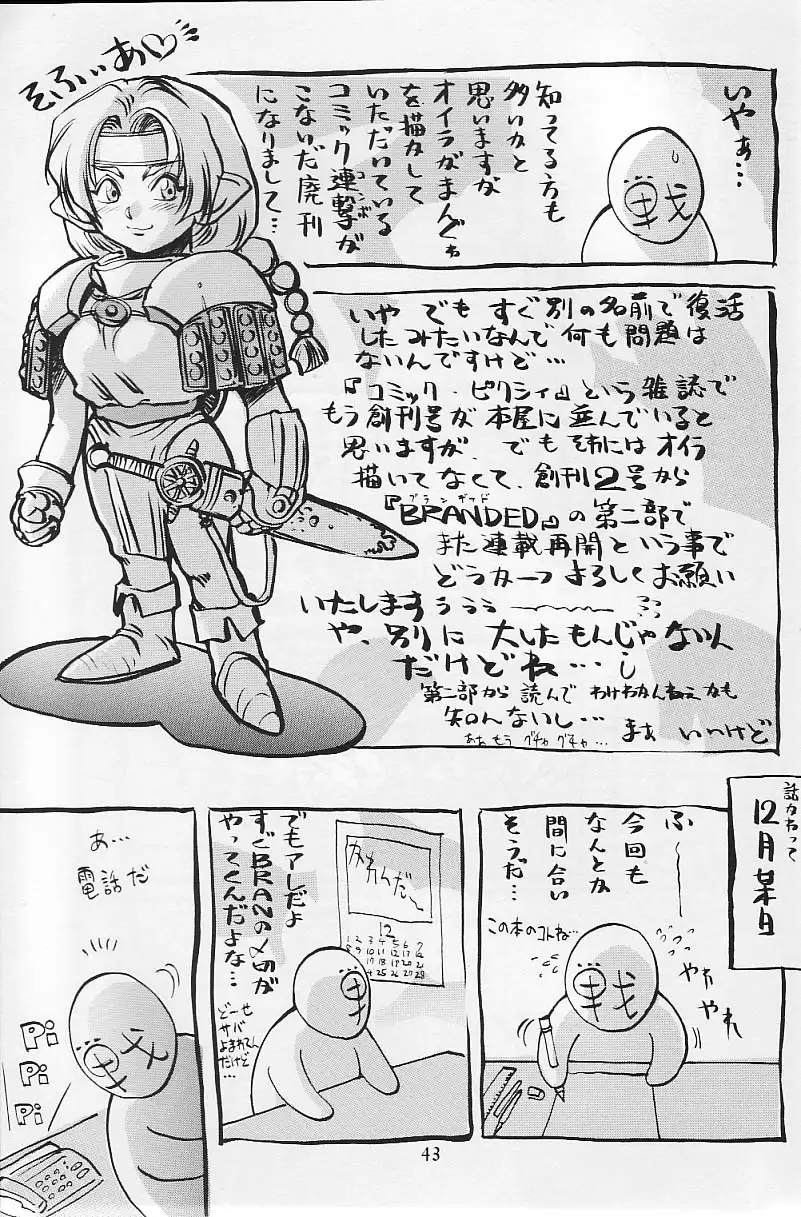 そふぃあ♡
いやぁ…
知ってる方も
多いかと
思いますが
オイラがまんがを描かして
いただいている
コミック連撃が
コンボ
こないだ廃刊
になりまして…
戦
いや でも すぐ別の名前で復活
したみたいなんで何も問題は
ないんですけど…
『コミック・ピクシィ』という雑誌で
もう創刊号が本屋に並んでいると
思いますが、でもそれにはオイラ
描いてなくて、創刊2号から
ブランデッド
『BRANDED』の第二部で
また連載再開という事で
どうか一つよろしくお願い
いたしますぅぅぅ
や、別に大したもんじゃないん
だけどね…
第二部から読んでわけわかんねえかも
知んないし… まぁ いいけど
ああもうグチャグチャ…
話かわって
12月某日
ふ〜
今回も
なんとか
間に合い
そうだ…
この本のコトね…
やれ
やれ
戦
でもアレだよ
すぐBRANの〆切が
やってくんだよな…
どーせ
サバ
よまれてん
だけど
…
12
1 2 3 4 5 6 7
戦
あ…
電話だ
Pi
Pi
Pi
戦
43